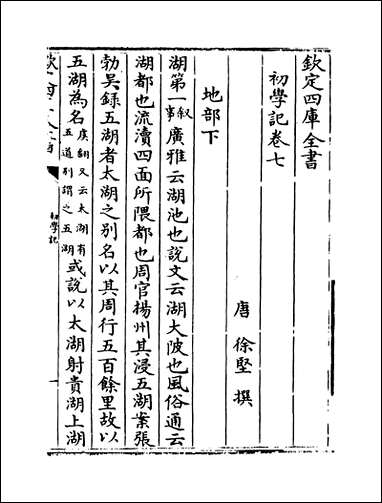 欽定四庫全書
初學記卷七
唐 徐堅 撰
地部下
湖第一 敘事 廣雅云湖池也說文云湖大陂也風俗通云
湖都也流瀆四面所隈都也周官揚州其浸五湖案張
勃吳錄五湖者太湖之别名以其周行五百餘里故以
五湖為名 虞翻又云太湖有五道别謂之五湖 或說以太湖射貴湖上湖
初學記